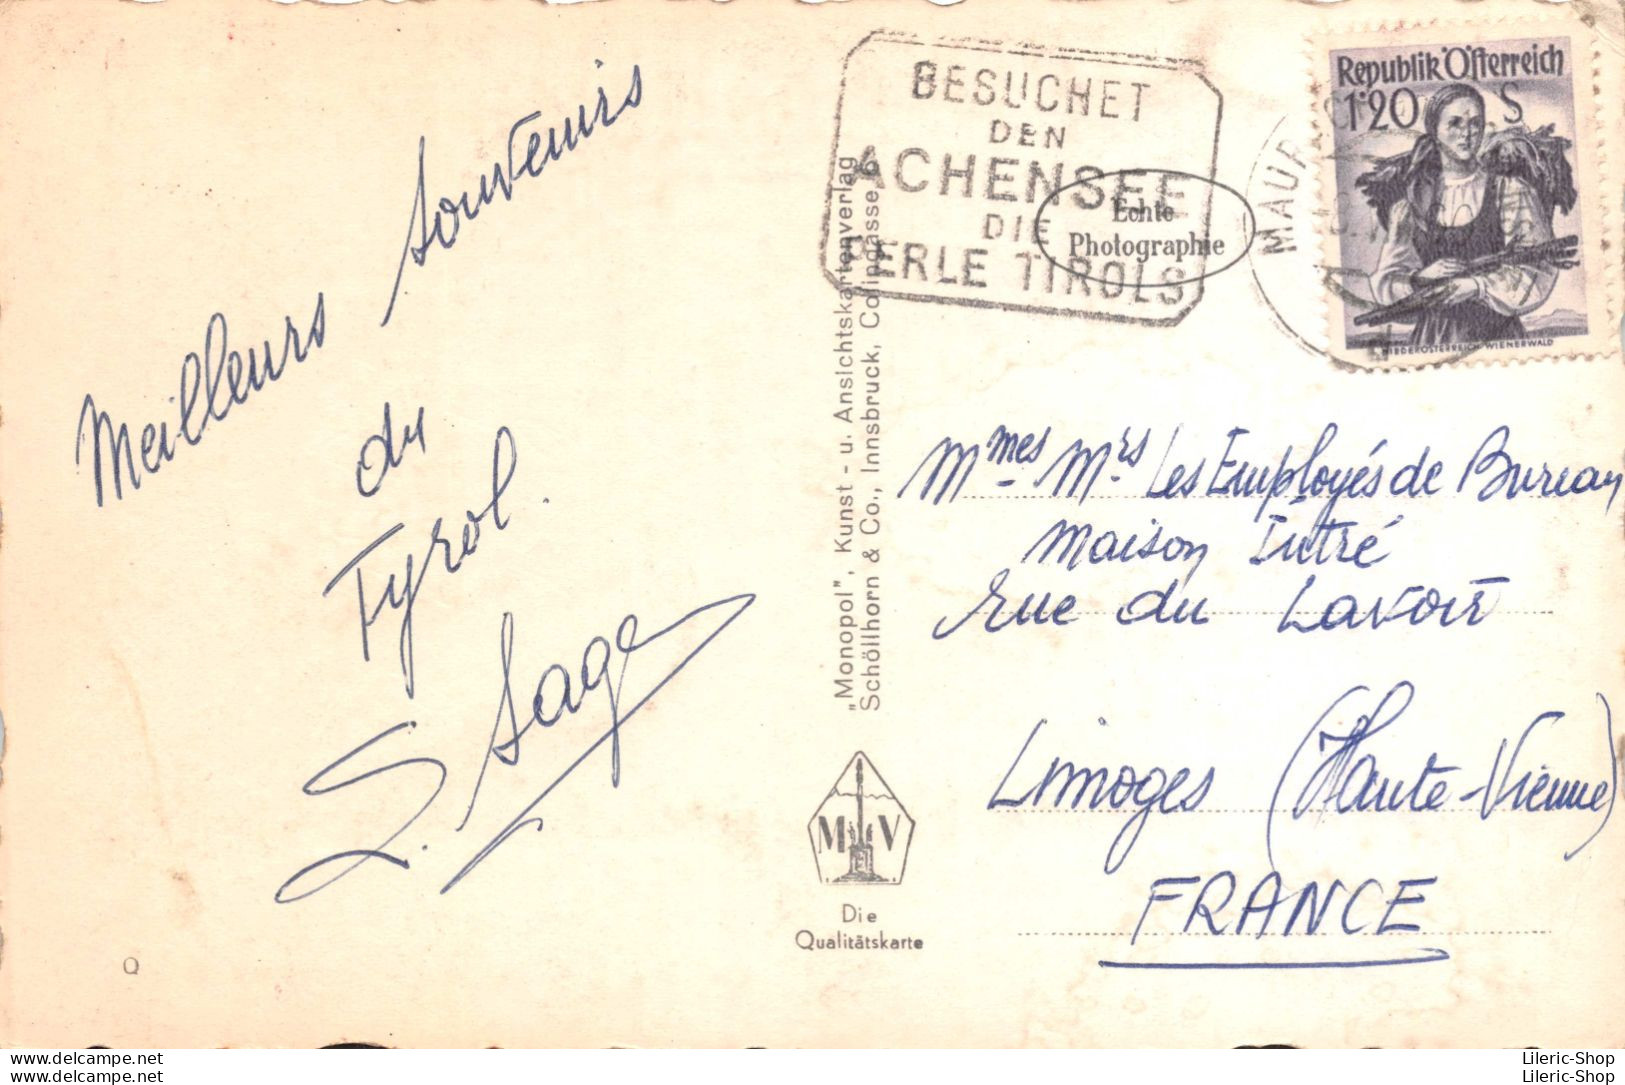 Meilleurs Souvenirs
du
Tyrol.
S. Sage
BESUCHET
DEN
ACHENSEE
DIE
PERLE TIROLS
Echte
Photographie
Republik Österreich
1·20 S
NIEDERÖSTERREICH, WIENERWALD
MAUR
"Monopol", Kunst- u. Ansichtskartenverlag
Schöllhorn & Co., Innsbruck, Colingasse
Mmes Mrs Les Employés de Bureau
Maison Intré
rue du Lavoir
Limoges (Haute-Vienne)
FRANCE
M V
Die
Qualitätskarte
Q
www.delcampe.net
www.delcampe.net
Lileric-Shop
Lileric-Shop